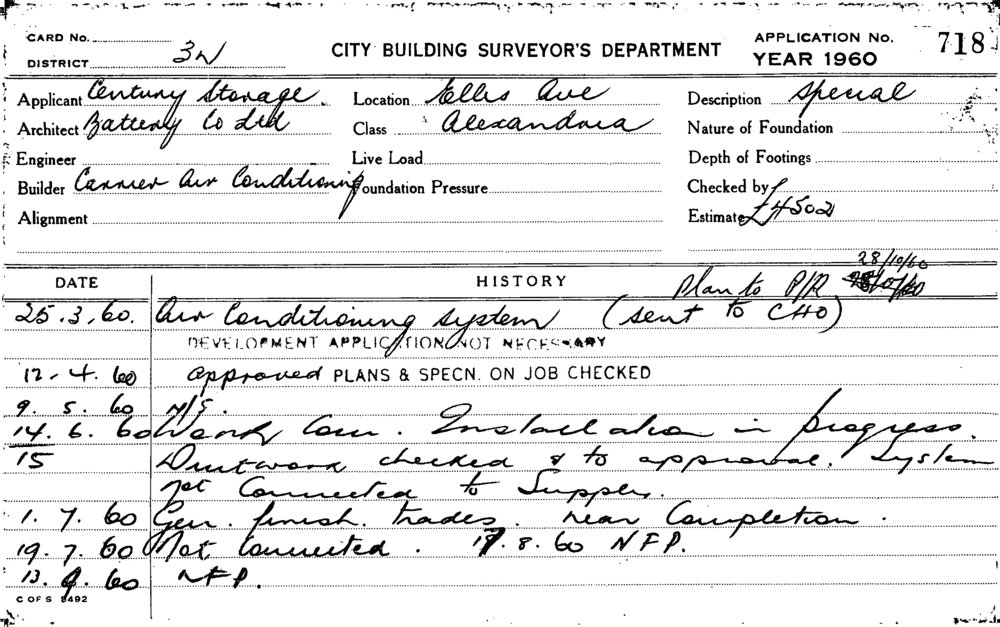 CARD No.
DISTRICT 3W
CITY BUILDING SURVEYOR'S DEPARTMENT
APPLICATION No. 718
YEAR 1960
Applicant Century Storage
Location Ellis Ave
Description Special
Architect Battery Co Ltd
Class Alexandria
Nature of Foundation
Engineer
Live Load
Depth of Footings
Builder Carrier Air Conditioning
Foundation Pressure
Checked by
Alignment
Estimate £4502
28/10/60
DATE HISTORY Plan to P/R
25.3.60. Air Conditioning System (sent to CHO)
DEVELOPMENT APPLICATION NOT NECESSARY
12-4.60 approved PLANS & SPECN. ON JOB CHECKED
9.5.60 N/S.
14.6.60 Work Com. Installation in progress.
15 Ductwork checked & to approval. System
not Connected to Supply.
1.7.60 Gen. finish. trades. near Completion.
19.7.60 Not Connected. 17.8.60 NFP.
13.9.60 NFP.
C OF S 8492